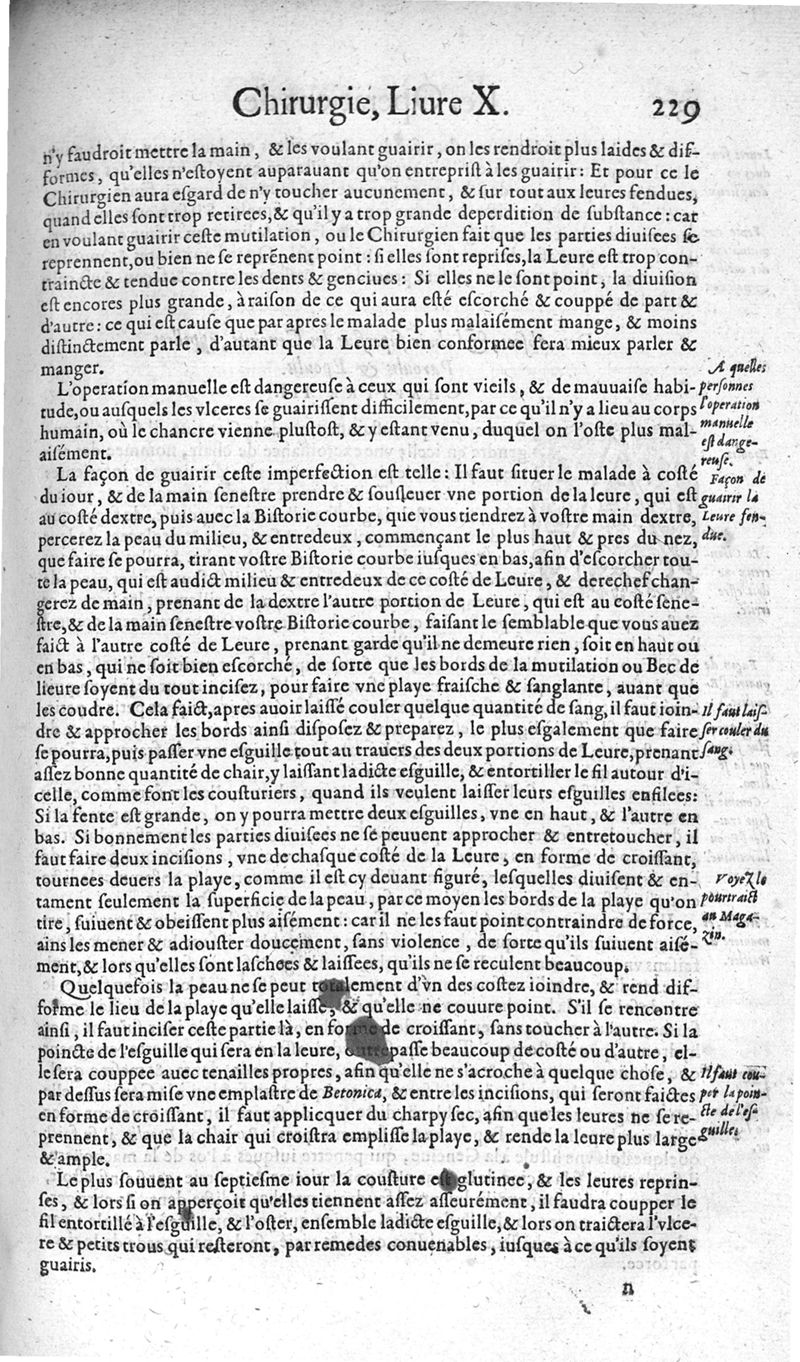 Chirurgie, Liure X. 229
n'y faudroit mettre la main, & les voulant guairir, on les rendroit plus laides & dif-
formes, qu'elles n'eſtoyent auparauant qu'on entrepriſt à les guairir: Et pour ce le
Chirurgien aura eſgard de n'y toucher aucunement, & ſur tout aux leures fendues,
quand elles ſont trop retirees,& qu'il y a trop grande deperdition de ſubſtance: car
en voulant guairir ceſte mutilation, ou le Chirurgien fait que les parties diuiſees ſe
reprennent,ou bien ne ſe reprẽnent point: ſi elles ſont repriſes,la Leure eſt trop con-
traincte & tendue contre les dents & genciues: Si elles ne le ſont point, la diuiſion
eſt encores plus grande, à raiſon de ce qui aura eſté eſcorché & couppé de part &
d'autre: ce qui eſt cauſe que par apres le malade plus malaiſément mange, & moins
diſtinctement parle, d'autant que la Leure bien conformee fera mieux parler &
manger.
A quelles
personnes
l'operation
manuelle
eſt dange-
reuſe.
L'operation manuelle eſt dangereuſe à ceux qui ſont vieils, & de mauuaiſe habi-
tude,ou auſquels les vlceres ſe guairiſſent difficilement,par ce qu'il n'y a lieu au corps
humain, où le chancre vienne pluſtoſt, & y eſtant venu, duquel on l'oſte plus mal-
aiſément.
Façon de
guairir la
Leure fen-
due.
La façon de guairir ceſte imperfection eſt telle: Il faut ſituer le malade à coſté
du iour, & de la main ſeneſtre prendre & ſouſleuer vne portion de la leure, qui eſt
au coſté dextre, puis auec la Biſtorie courbe, que vous tiendrez à voſtre main dextre,
percerez la peau du milieu, & entredeux, commençant le plus haut & pres du nez,
que faire ſe pourra, tirant voſtre Biſtorie courbe iuſques en bas,afin d'eſcorcher tou-
te la peau, qui eſt audict milieu & entredeux de ce coſté de Leure, & derechef chan-
gerez de main, prenant de la dextre l'autre portion de Leure, qui eſt au coſté ſene-
ſtre,& de la main ſeneſtre voſtre Biſtorie courbe, faiſant le ſemblable que vous auez
faict à l'autre coſté de Leure, prenant garde qu'il ne demeure rien, ſoit en haut ou
en bas, qui ne ſoit bien eſcorché, de ſorte que les bords de la mutilation ou Bec de
lieure ſoyent du tout inciſez, pour faire vne playe fraiſche & ſanglante, auant que
les coudre. Cela faict,apres auoir laiſſé couler quelque quantité de ſang,il faut ioin-
dre & approcher les bords ainſi diſpoſez & preparez, le plus eſgalement que faire
ſe pourra,puis paſſer vne eſguille tout au trauers des deux portions de Leure,prenant
aſſez bonne quantité de chair,y laiſſant ladicte eſguille, & entortiller le fil autour d'i-
celle, comme font les couſturiers, quand ils veulent laiſſer leurs eſguilles enfilees:
Si la fente eſt grande, on y pourra mettre deux eſguilles, vne en haut, & l'autre en
bas. Si bonnement les parties diuiſees ne ſe peuuent approcher & entretoucher, il
faut faire deux inciſions, vne de chaſque coſté de la Leure, en forme de croiſſant,
tournees deuers la playe, comme il eſt cy deuant figuré, leſquelles diuiſent & en-
tament ſeulement la ſuperficie de la peau, par ce moyen les bords de la playe qu'on
tire, ſuiuent & obeiſſent plus aiſément: car il ne les faut point contraindre de force,
ains les mener & adiouſter doucement, ſans violence, de ſorte qu'ils ſuiuent aiſé-
ment,& lors qu'elles ſont laſchees & laiſſees, qu'ils ne ſe reculent beaucoup.
Il faut laiſ-
ſer couler du
ſang.
Voyez le
pourtraict
au Maga-
zin.
Quelquefois la peau ne ſe peut totalement d'vn des coſtez ioindre, & rend dif-
forme le lieu de la playe qu'elle laiſſe, & qu'elle ne couure point. S'il ſe rencontre
ainſi, il faut inciſer ceſte partie là, en forme de croiſſant, ſans toucher à l'autre. Si la
poincte de l'eſguille qui ſera en la leure, outrepaſſe beaucoup de coſté ou d'autre, el-
le ſera couppee auec tenailles propres, afin qu'elle ne s'acroche à quelque choſe, &
par deſſus ſera miſe vne emplaſtre de Betonica, & entre les inciſions, qui ſeront faictes
en forme de croiſſant, il faut applicquer du charpy ſec, afin que les leures ne ſe re-
prennent, & que la chair qui croiſtra empliſſe la playe, & rende la leure plus large
& ample.
Il faut cou-
per la poin-
cte de l'eſ-
guille.
Le plus ſouuent au ſeptieſme iour la couſture eſt glutinee, & les leures reprin-
ſes, & lors ſi on apperçoit qu'elles tiennent aſſez aſſeurément, il faudra coupper le
fil entortillé à l'eſguille, & l'oſter, enſemble ladicte eſguille,& lors on traictera l'vlce-
re & petits trous qui reſteront, par remedes conuenables, iuſques à ce qu'ils ſoyent
guairis.
n